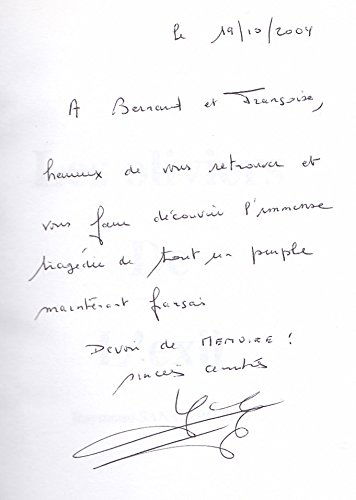 le 19/10/2004
A Bernard et Françoise,
heureux de vous retrouver et
vous faire découvrir l'immense
tragédie de tout un peuple
maintenant français
Devoir de MEMOIRE !